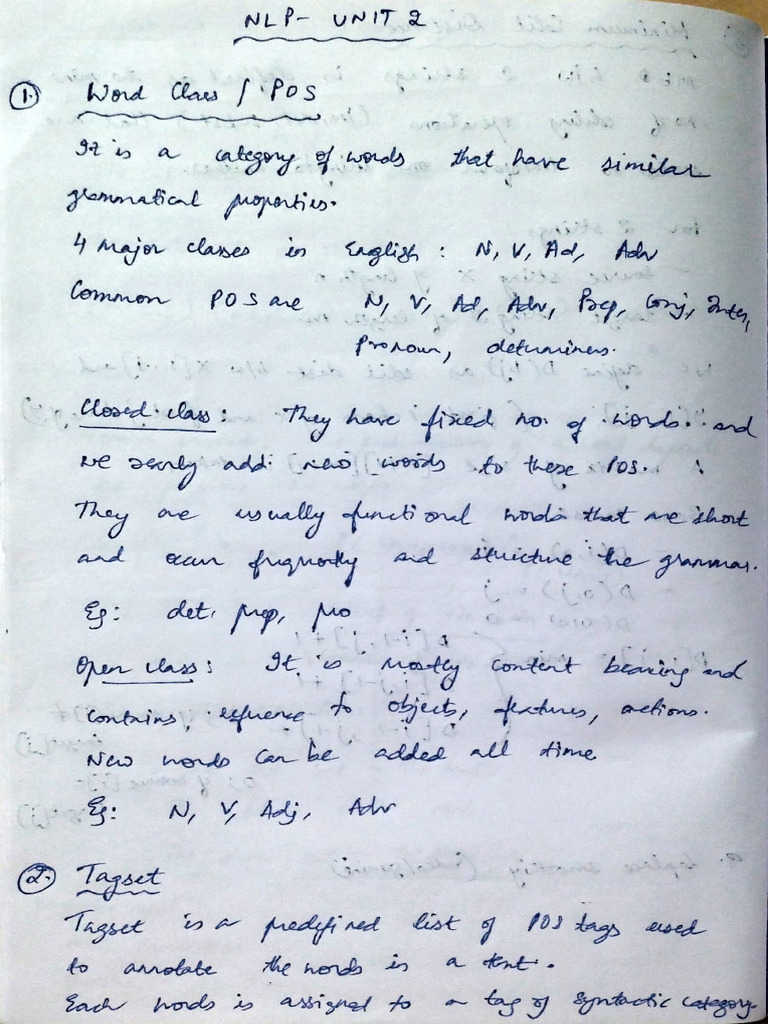 NLP - UNIT 2
1. Word Class / POS
It is a category of words that have similar
grammatical properties.
4 major classes in English : N, V, Ad, Adv
Common POS are N, V, Ad, Adv, Prep, Conj, Inter,
Pronoun, determiners.
Closed class : They have fixed no. of words and
we rarely add new words to these POS.
They are usually functional words that are short
and occur frequently and structure the grammar.
Eg: det, prep, pro
Open class : It is mostly content bearing and
contains reference to objects, features, actions.
New words can be added all time
Eg: N, V, Adj, Adv
2. Tagset
Tagset is a predefined list of POS tags used
to annotate the words is a text.
Each words is assigned to a tag of syntactic category